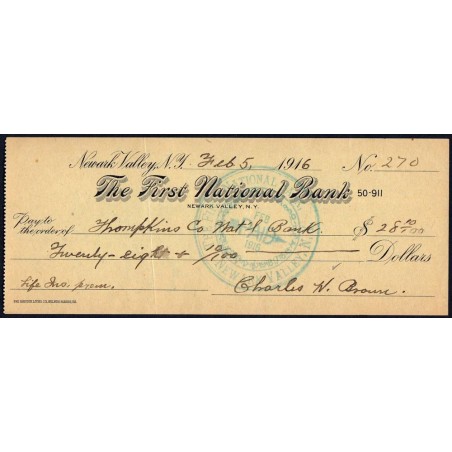 Newark Valley, N.Y. Feb 5, 1916 No. 270
The First National Bank 50-911
NEWARK VALLEY, N.Y.
Pay to
the order of Thompkins Co. Nat'l Bank $28
Twenty-eight + /100 Dollars
Life Ins. prem. Charles H. Brown.
NATIONAL
PAID
NEWARK VALLEY, N.Y.